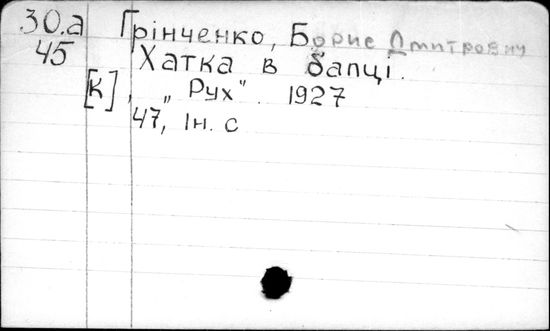 30.а Грінченко, Борис Дмитрович
45 Хатка в балці.
[К], „Рух". 1927
47, Ін. с